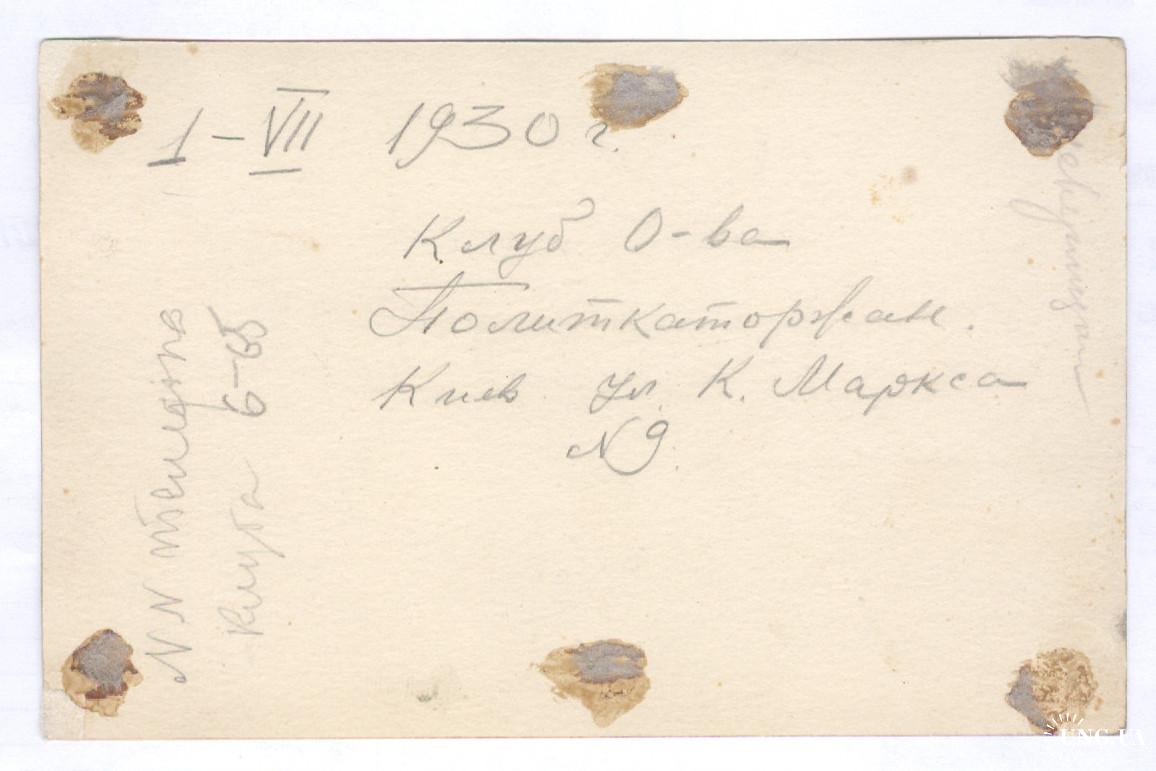 1-VII 1930 г.
Клуб О-ва
Политкаторжан.
Киев ул. К. Маркса
N 9.
NN телефона
клуба 6-65
UNC.UA